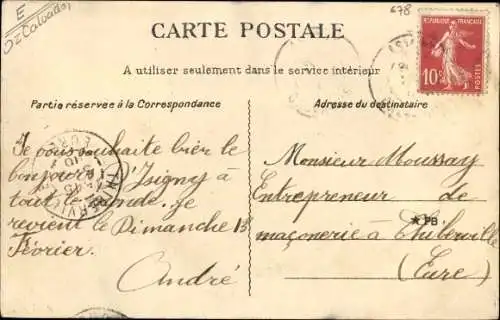 E
02 Calvados
678
CARTE POSTALE
A utiliser seulement dans le service intérieur
Partie réservée à la Correspondance
Adresse du destinataire
REPUBLIQUE FRANÇAISE
10c
POSTES
Je vous souhaite bien le
bonjour d'Isigny à
tout le monde. Je
reviens le Dimanche 13
Février.
André
Monsieur Moussay
Entrepreneur de
maçonerie à Thiberville
(Eure)
★PB
THIBERVILLE
EURE